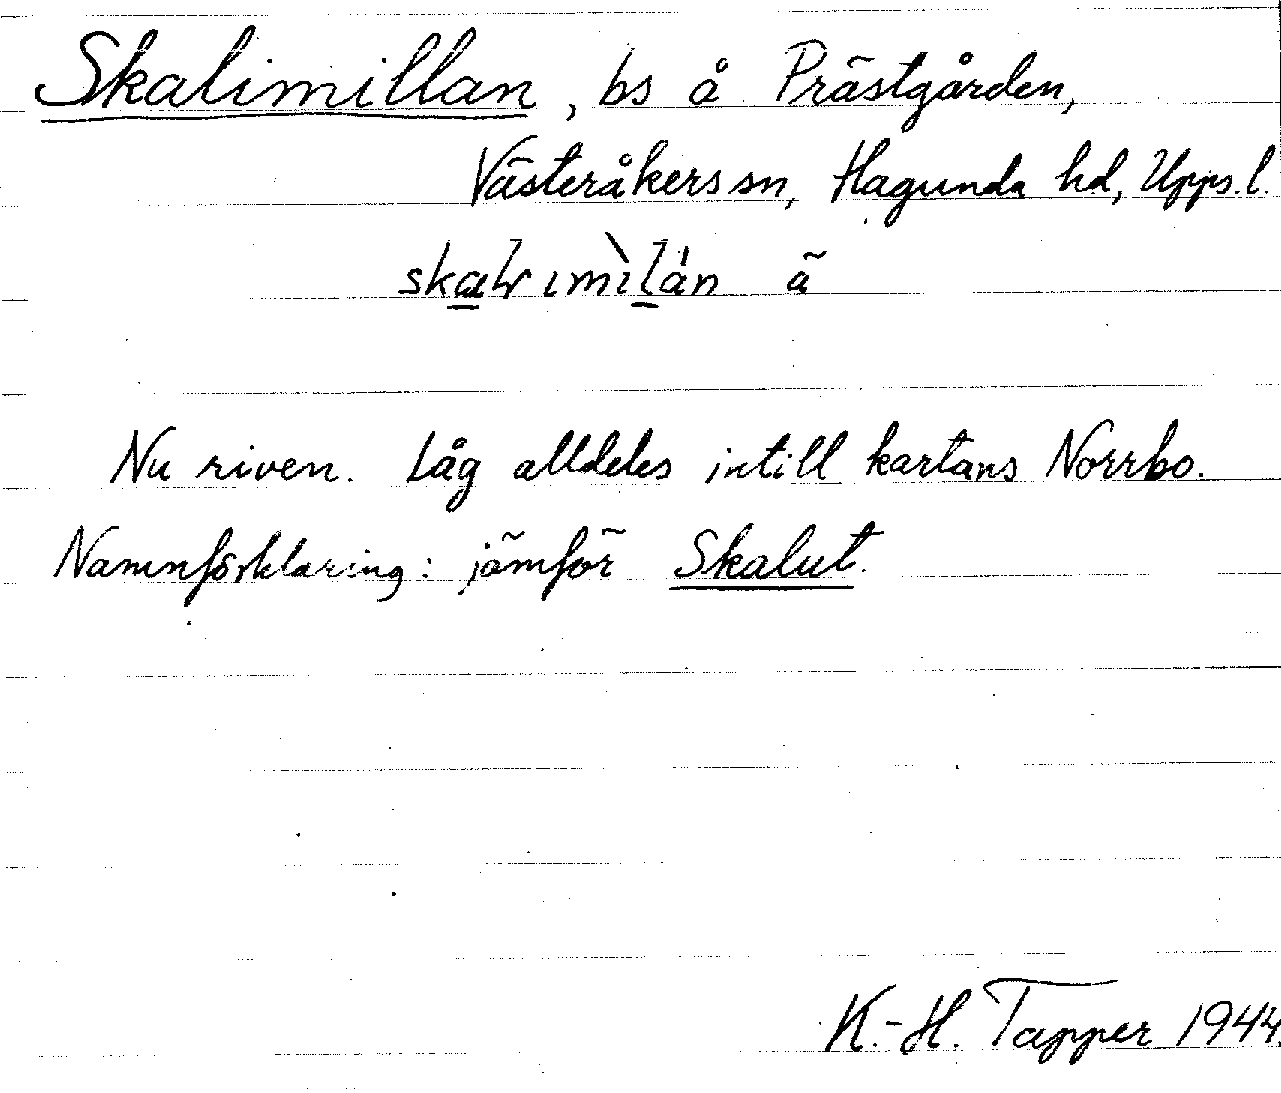 Skalimillan, bs å Prästgården,
Västeråkers sn, Hagunda hd, Upps. l.
ä
Nu riven. Låg alldeles intill kartans Norrbo.
Namnförklaring: jämför Skalut.
K.-H. Tapper 1944.